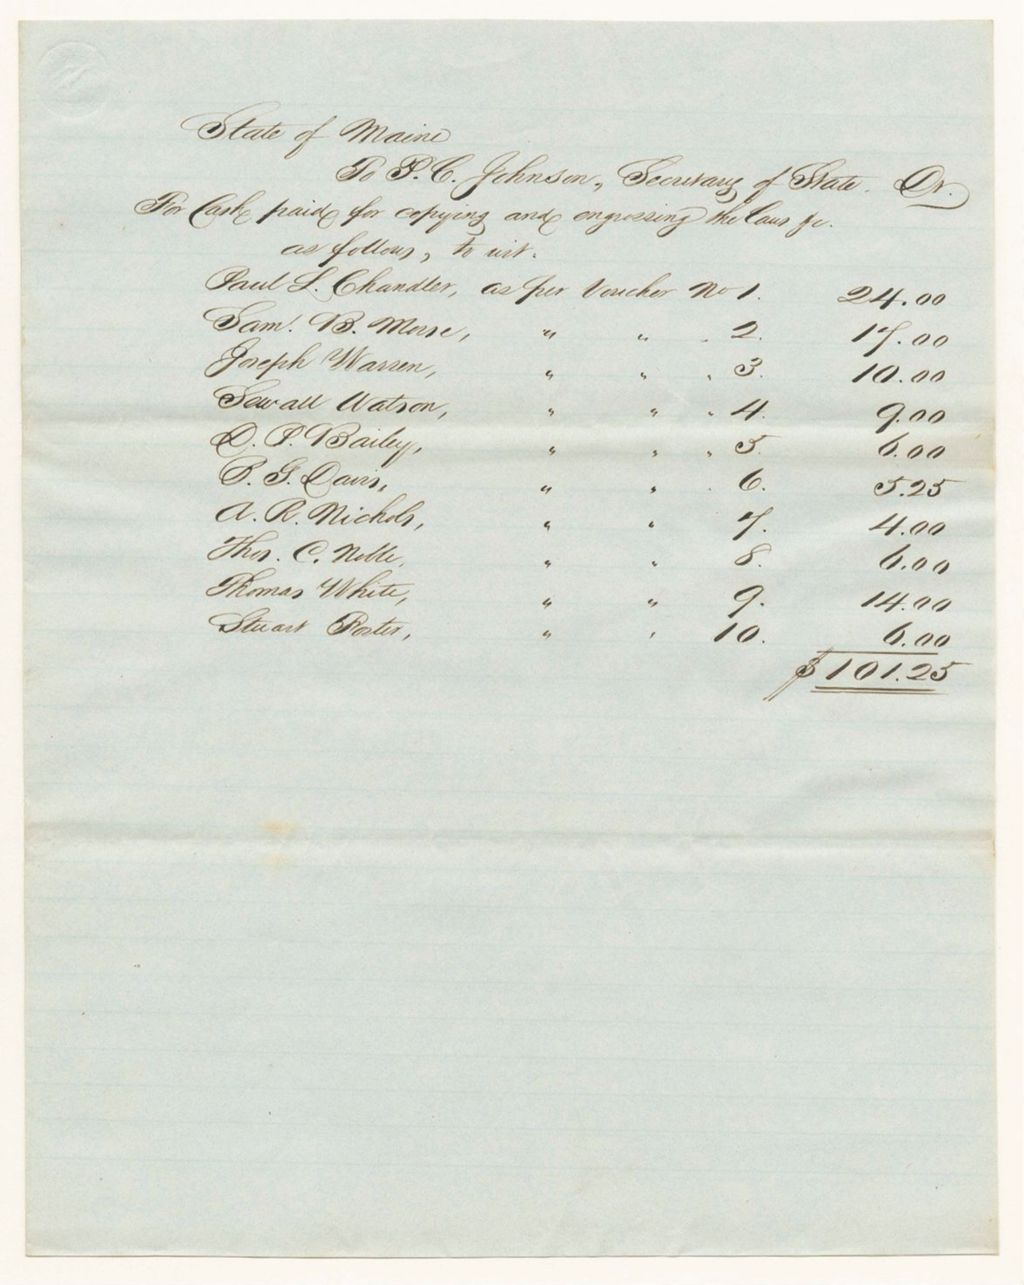 State of Maine
To P. C. Johnson, Secretary of State. Dr.
For Cash paid for copying and engrossing the Laws &c.
as follows, to wit.
Paul L. Chandler, as per Voucher No 1. 24.00
Sam. B. Morse, " " " 2. 17.00
Joseph Warren, " " " 3. 10.00
Sewall Watson, " " " 4. 9.00
D. P. Bailey, " " " 5. 6.00
P. G. Davis, " " " 6. 5.25
A. R. Nichols, " " 7. 4.00
Thos. C. Noble, " " 8. 6.00
Thomas White, " " 9. 14.00
Stuart Foster, " " 10. 6.00
$101.25